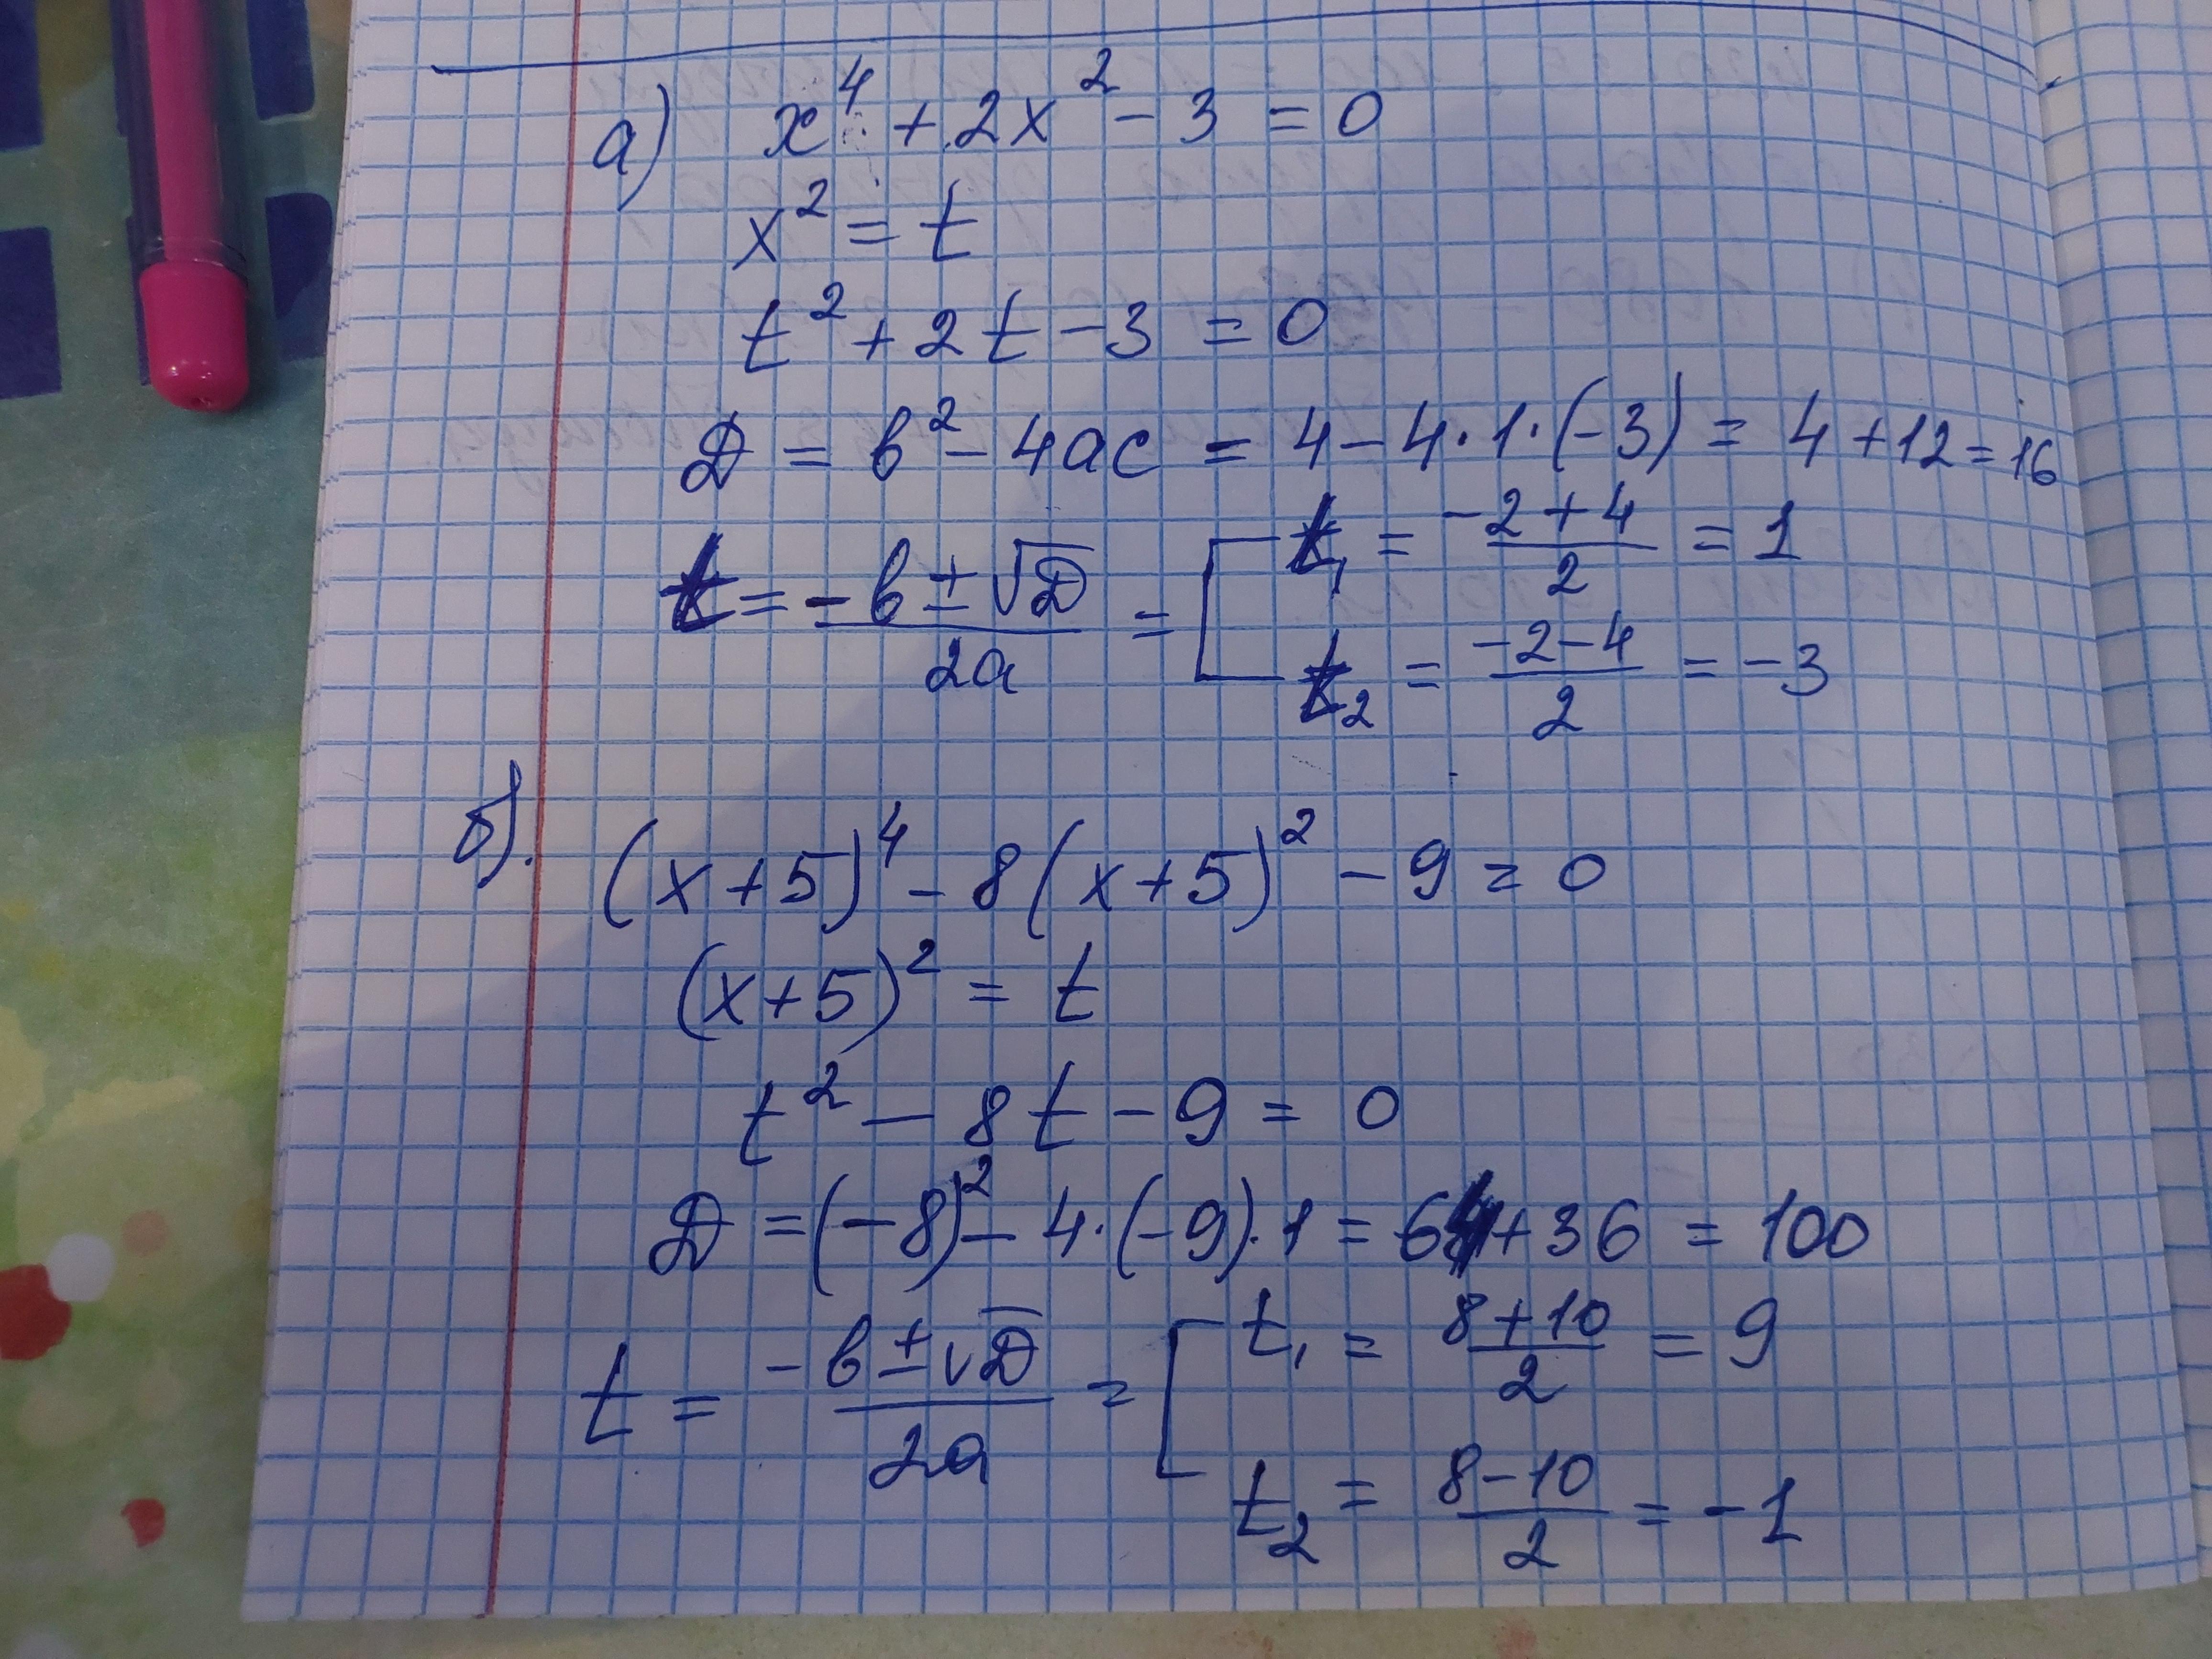 а) x⁴ + 2x² - 3 = 0
x² = t
t² + 2t - 3 = 0
D = b² - 4ac = 4 - 4·1·(-3) = 4 + 12 = 16
t = (-b ± √D)/2a = [ t₁ = (-2+4)/2 = 1
t₂ = (-2-4)/2 = -3
б). (x+5)⁴ - 8(x+5)² - 9 = 0
(x+5)² = t
t² - 8t - 9 = 0
D = (-8)² - 4·(-9)·1 = 64 + 36 = 100
t = (-b ± √D)/2a = [ t₁ = (8+10)/2 = 9
t₂ = (8-10)/2 = -1